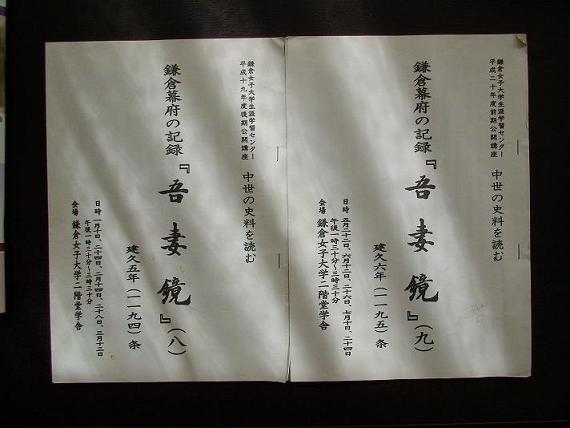 鎌倉女子大学生涯学習センター
平成二十年度前期公開講座
中世の史料を読む
鎌倉幕府の記録『吾妻鏡』(九)
建久六年(一一九五)条
日時 五月二十二日、六月十二日、二十六日、七月十日、二十四日
午後一時三十分~三時三十分
会場 鎌倉女子大学二階堂学舎
鎌倉女子大学生涯学習センター
平成十九年度後期公開講座
中世の史料を読む
鎌倉幕府の記録『吾妻鏡』(八)
建久五年(一一九四)条
日時 一月十日、二十四日、二月十四日、二十八日、三月十三日
午後一時三十分~三時三十分
会場 鎌倉女子大学二階堂学舎